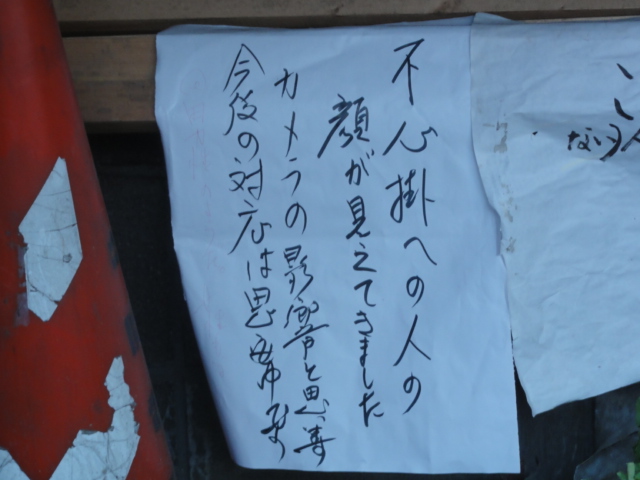 不心掛への人の
顔が見えてきました
カメラの影響と思
今後の対応は思
こ
ならん